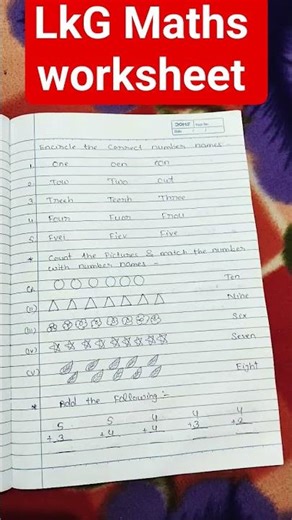 LkG Maths
worksheet
Encircle the Correct number names
1. One Oen eon
2. Tow Two out
3. Treeh Teerh Three
4. Four Fuor Frou
5. Fvei Eicv Five
* Count the Pictures & match the number
with number names -
Ten
(ii) Nine
(iii) Six
(iv) Seven
(v) Eight
* Add the Following :-
5 5 4 4 4
+3 +4 +4 +3 +2